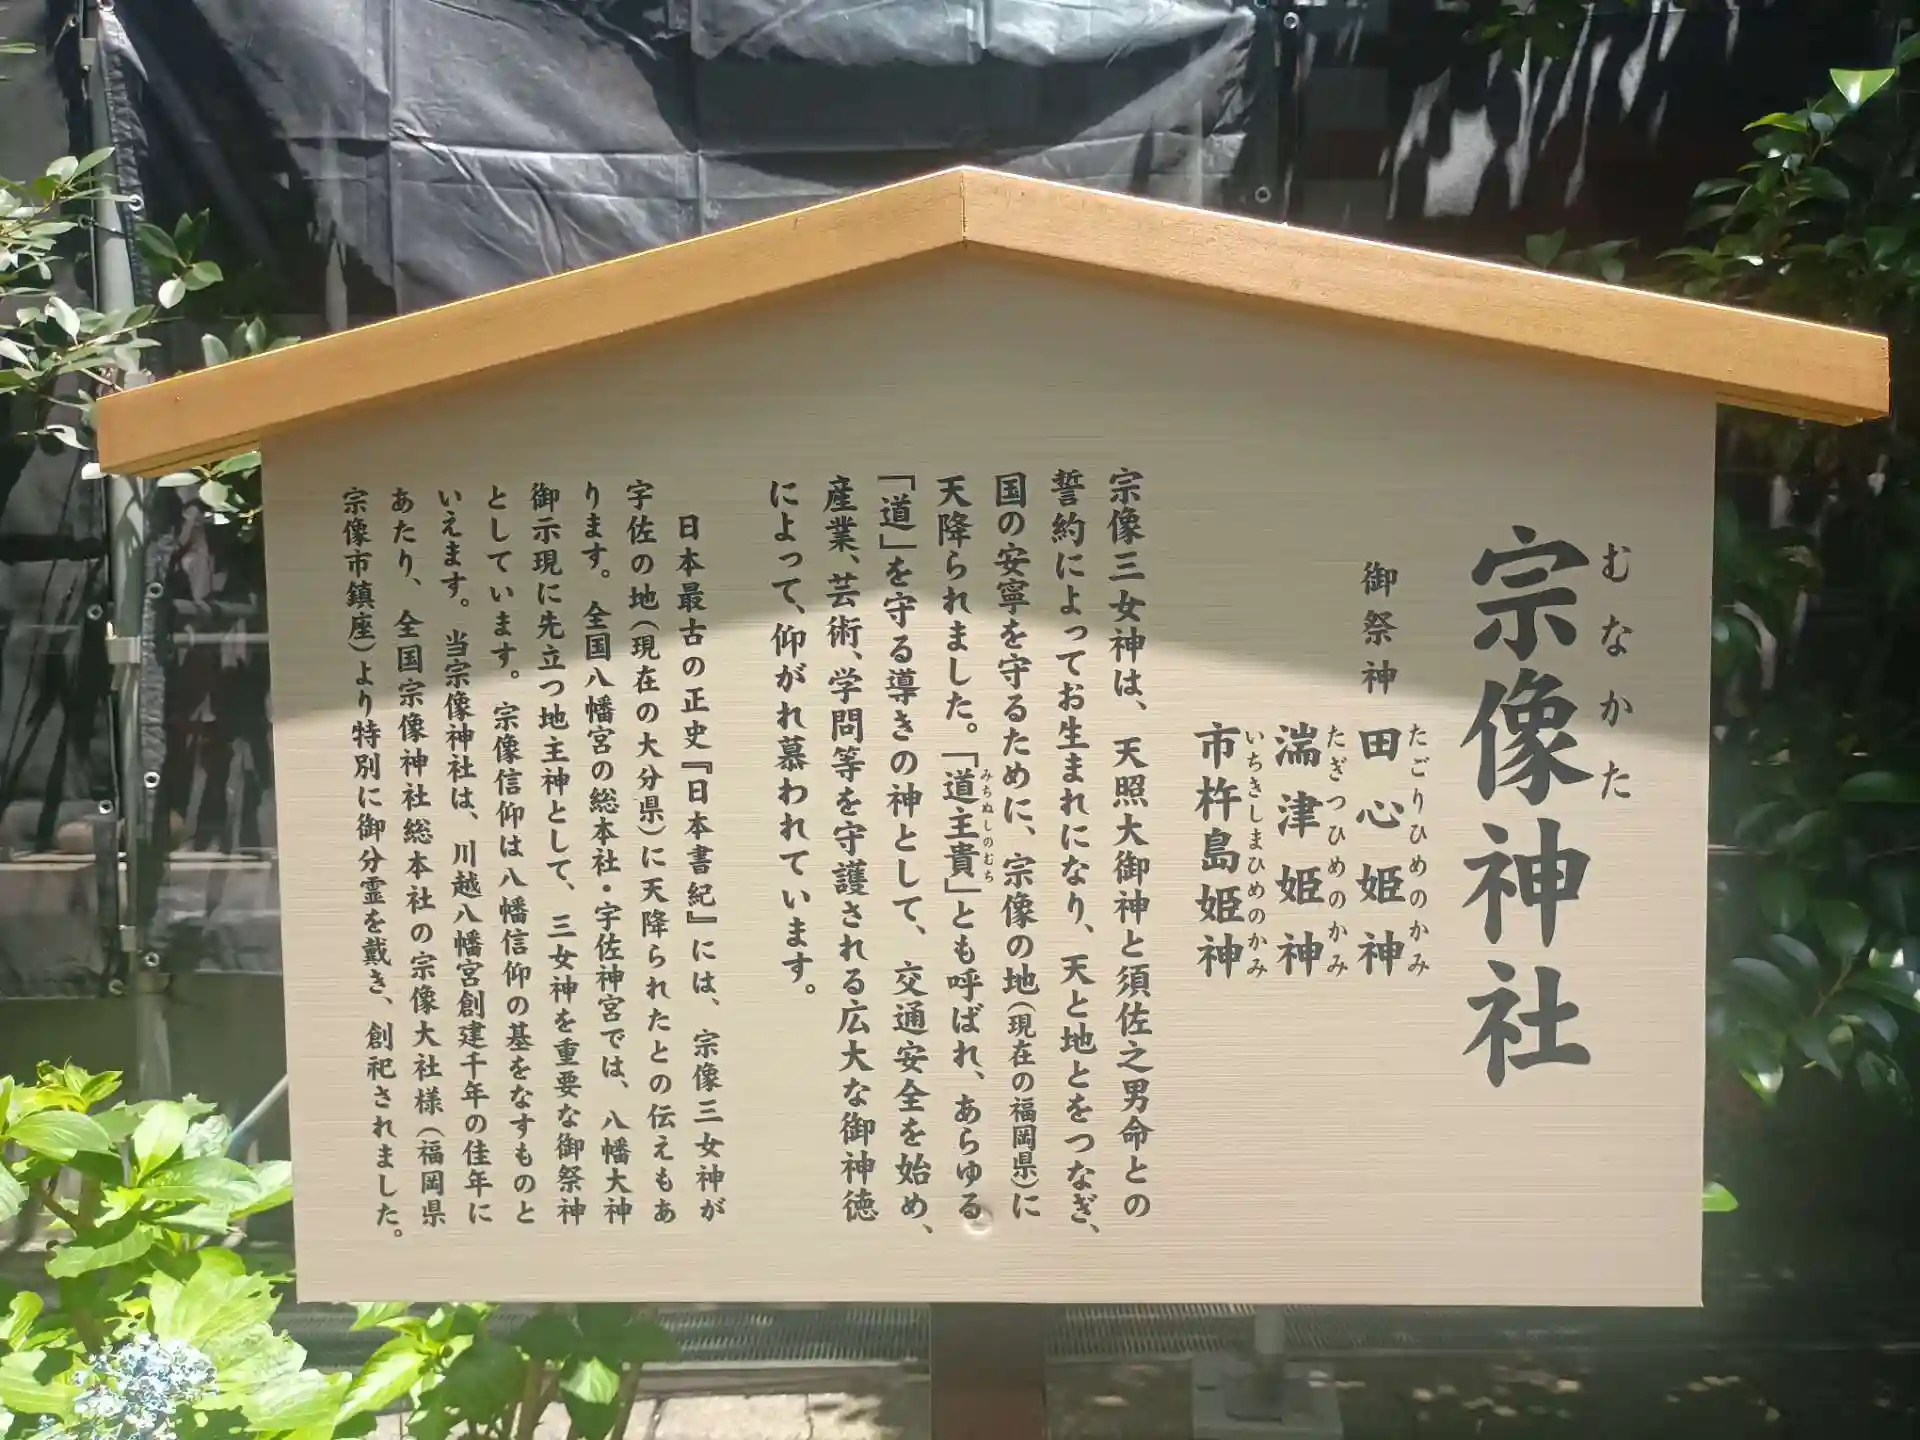 宗像神社
むなかた
御祭神
田心姫神
たごりひめのかみ
湍津姫神
たぎつひめのかみ
市杵島姫神
いちきしまひめのかみ
宗像三女神は、天照大御神と須佐之男命との
誓約によってお生まれになり、天と地とをつなぎ、
国の安寧を守るために、宗像の地(現在の福岡県)に
天降られました。「道主貴」とも呼ばれ、あらゆる
みちぬしのむち
「道」を守る導きの神として、交通安全を始め、
産業、芸術、学問等を守護される広大な御神徳
によって、仰がれ慕われています。
日本最古の正史『日本書紀』には、宗像三女神が
宇佐の地(現在の大分県)に天降られたとの伝えもあ
ります。全国八幡宮の総本社・宇佐神宮では、八幡大神
御示現に先立つ地主神として、三女神を重要な御祭神
としています。宗像信仰は八幡信仰の基をなすものと
いえます。当宗像神社は、川越八幡宮創建千年の佳年に
あたり、全国宗像神社総本社の宗像大社様(福岡県
宗像市鎮座)より特別に御分霊を戴き、創祀されました。